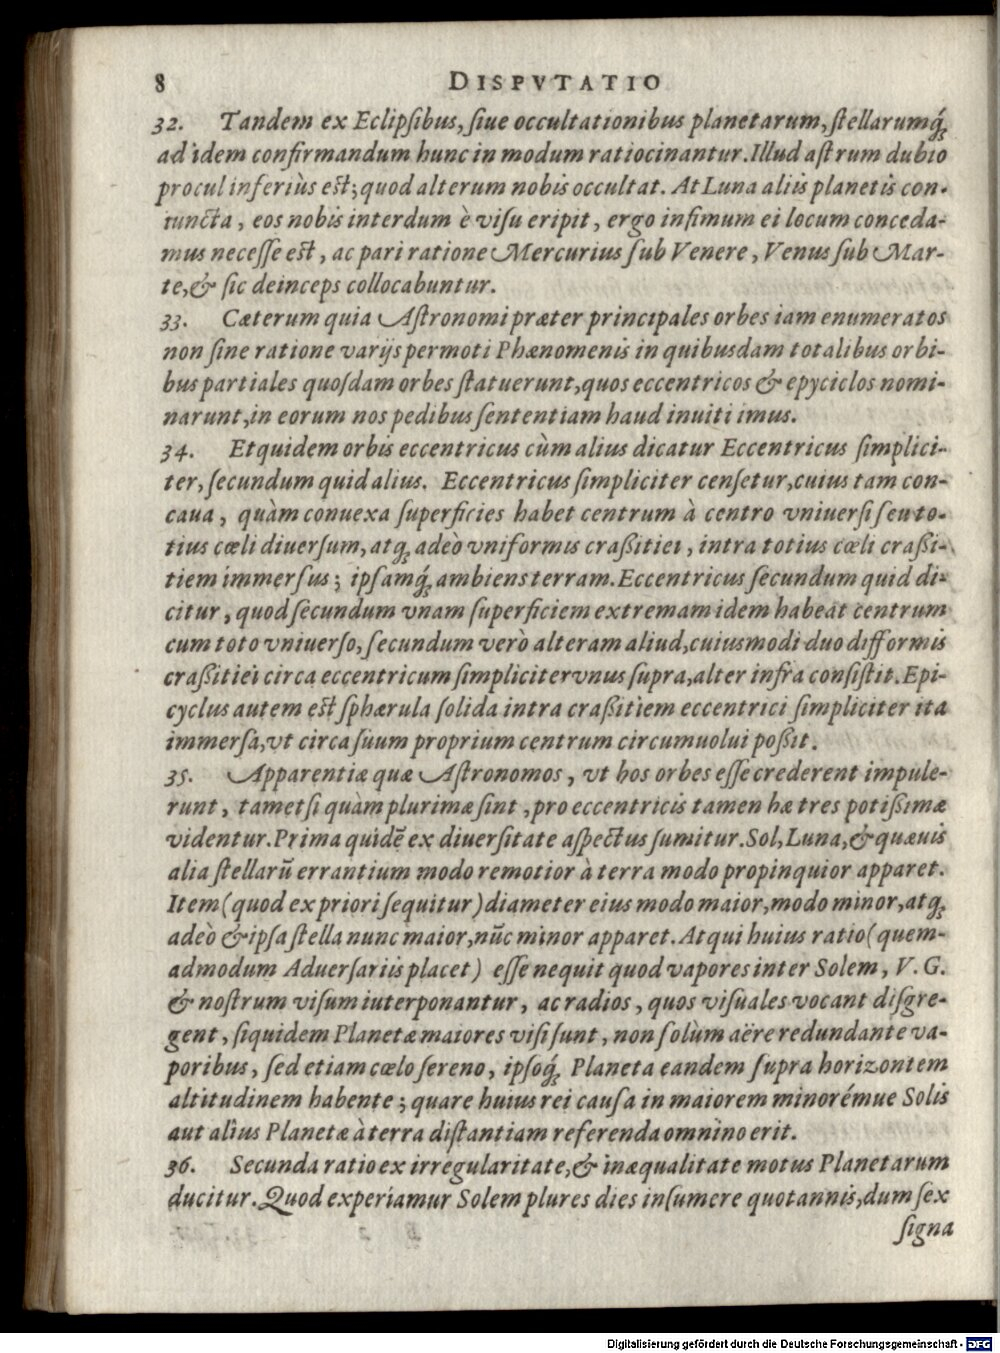 8 DISPVTATIO
32. Tandem ex Eclipſibus, ſiue occultationibus planetarum, ſtellarumq́ꝫ
ad idem confirmandum hunc in modum ratiocinantur. Illud aſtrum dubio
procul inferiùs eſt; quod alterum nobis occultat. At Luna aliis planetis con-
iuncta, eos nobis interdum è viſu eripit, ergo infimum ei locum conceda-
mus neceſſe eſt, ac pari ratione Mercurius ſub Venere, Venus ſub Mar-
te, & ſic deinceps collocabuntur.
33. Cæterum quia Aſtronomi præter principales orbes iam enumeratos
non ſine ratione varijs permoti Phænomenis in quibusdam totalibus orbi-
bus partiales quoſdam orbes ſtatuerunt, quos eccentricos & epyciclos nomi-
narunt, in eorum nos pedibus ſententiam haud inuiti imus.
34. Et quidem orbis eccentricus cùm alius dicatur Eccentricus ſimplici-
ter, ſecundum quid alius. Eccentricus ſimpliciter cenſetur, cuius tam con-
caua, quàm conuexa ſuperficies habet centrum à centro vniuerſi ſeu to-
tius cœli diuerſum, atqꝫ adeò vniformis craßitiei, intra totius cœli craßi-
tiem immerſus; ipſamq́ꝫ ambiens terram. Eccentricus ſecundum quid di-
citur, quod ſecundum vnam ſuperficiem extremam idem habeat centrum
cum toto vniuerſo, ſecundum verò alteram aliud, cuiusmodi duo difformis
craßitiei circa eccentricum ſimpliciter vnus ſupra, alter infra conſiſtit. Epi-
cyclus autem eſt ſphærula ſolida intra craßitiem eccentrici ſimpliciter ita
immerſa, vt circa ſuum proprium centrum circumuolui poßit.
35. Apparentiæ quæ Aſtronomos, vt hos orbes eſſe crederent impule-
runt, tametſi quàm plurimæ ſint, pro eccentricis tamen hæ tres potißimæ
videntur. Prima quidẽ ex diuerſitate aſpectus ſumitur. Sol, Luna, & quæuis
alia ſtellarũ errantium modo remotior à terra modo propinquior apparet.
Item (quod ex priori ſequitur) diameter eius modo maior, modo minor, atqꝫ
adeò & ipſa ſtella nunc maior, nũc minor apparet. Atqui huius ratio (quem-
admodum Aduerſariis placet) eſſe nequit quod vapores inter Solem, V. G.
& noſtrum viſum iuterponantur, ac radios, quos viſuales vocant diſgre-
gent, ſiquidem Planetæ maiores viſi ſunt, non ſolùm aëre redundante va-
poribus, ſed etiam cœlo ſereno, ipſoq́ꝫ Planeta eandem ſupra horizontem
altitudinem habente; quare huius rei cauſa in maiorem minorémue Solis
aut alius Planetæ à terra diſtantiam referenda omnino erit.
36. Secunda ratio ex irregularitate, & inæqualitate motus Planetarum
ducitur. Quod experiamur Solem plures dies inſumere quotannis, dum ſex
ſigna
Digitalisierung gefördert durch die Deutsche Forschungsgemeinschaft - DFG